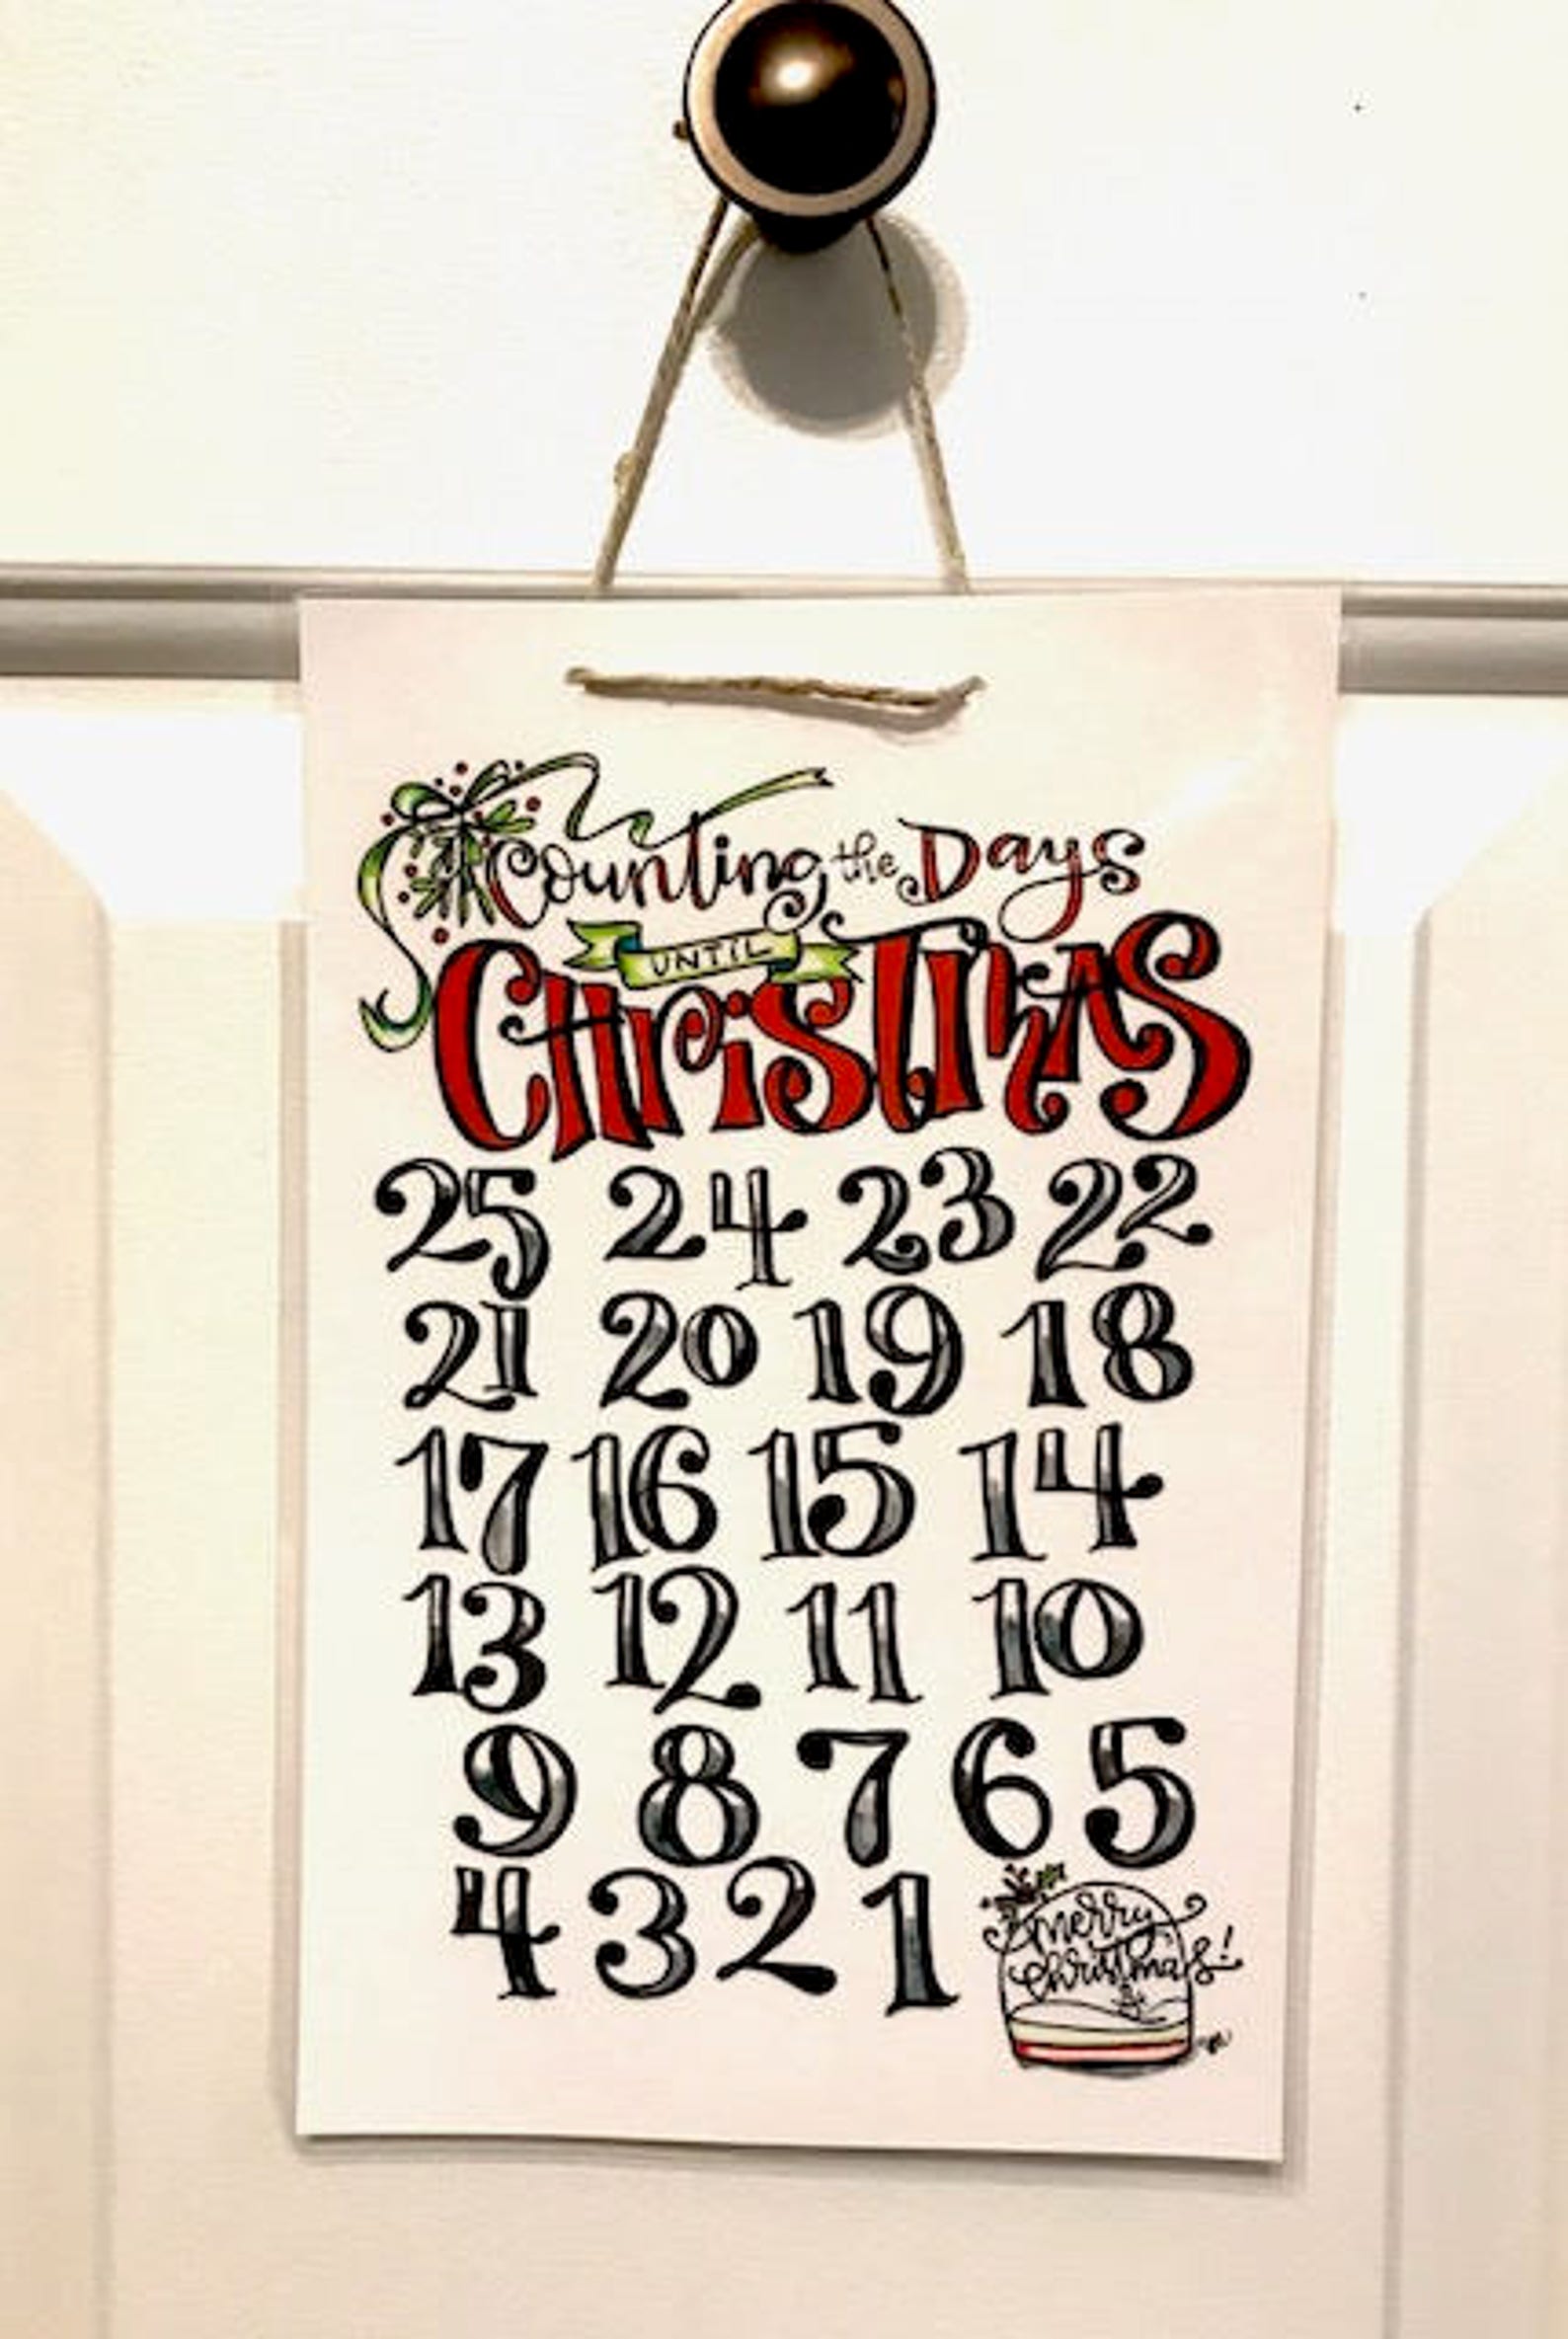 Counting the Days
UNTIL
CHriSTmAS
25 24 23 22
21 20 19 18
17 16 15 14
13 12 11 10
9 8 7 6 5
4 3 2 1
merry
christmas!